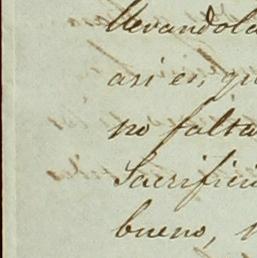 llevandola
asi es, qu
no falta
Sacrifici
bueno,